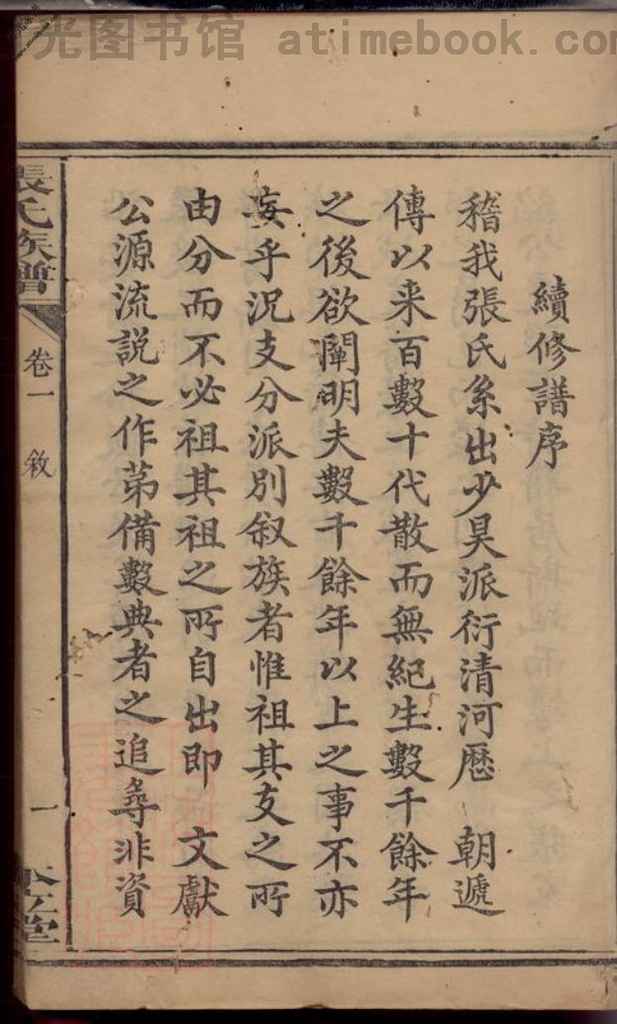 光图书馆 atimebook.com
續修譜序
稽我張氏系出少昊派衍清河歷 朝遞
傳以来百數十代散而無紀生數千餘年
之後欲闡明夫數千餘年以上之事不亦
妄乎況支分派別叙族者惟祖其支之所
由分而不必祖其祖之所自出即 文獻
公源流說之作苐備數典者之追尋非資
張氏族譜
卷一 敘
一